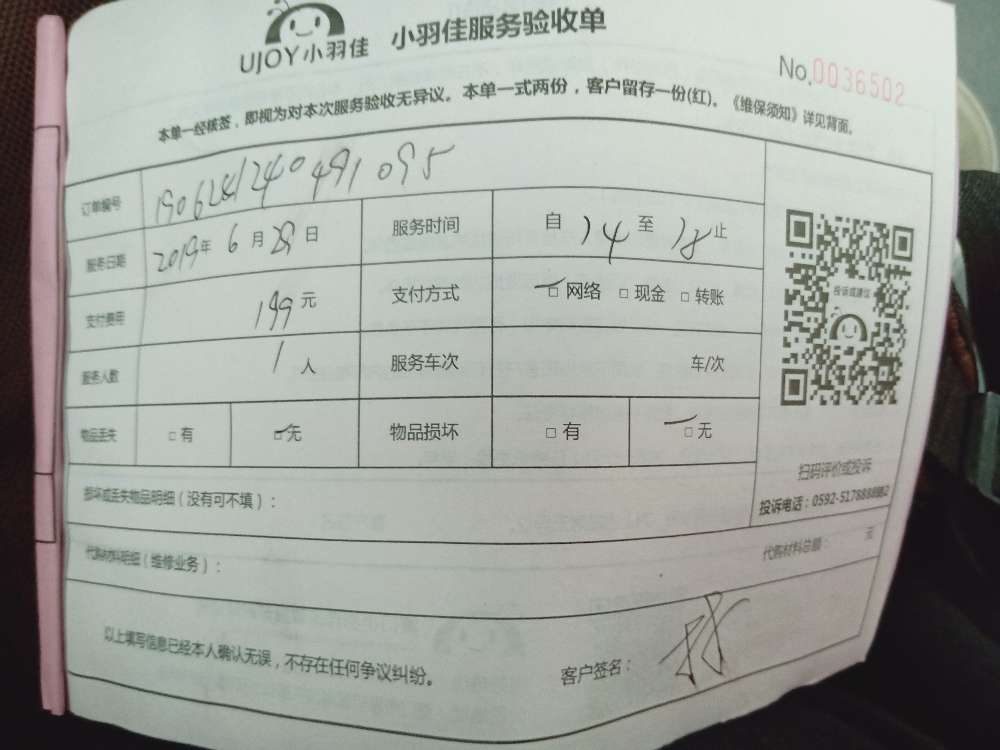 UJOY小羽佳 小羽佳服务验收单
No.0036502
本单一经核签，即视为对本次服务验收无异议。本单一式两份，客户留存一份(红)。《维保须知》详见背面。
订单编号 1906281240491095
服务日期 2019年6月28日 服务时间 自14至18止
支付费用 199元 支付方式 □网络 □现金 □转账
投诉或建议
服务人数 1人 服务车次 车/次
物品丢失 □有 □无 物品损坏 □有 □无
扫码评价或投诉
损坏或丢失物品明细（没有可不填）：
投诉电话：0592-5178888转2
代购材料明细（维修业务）： 代购材料总额： 元
以上填写信息已经本人确认无误，不存在任何争议纠纷。 客户签名：